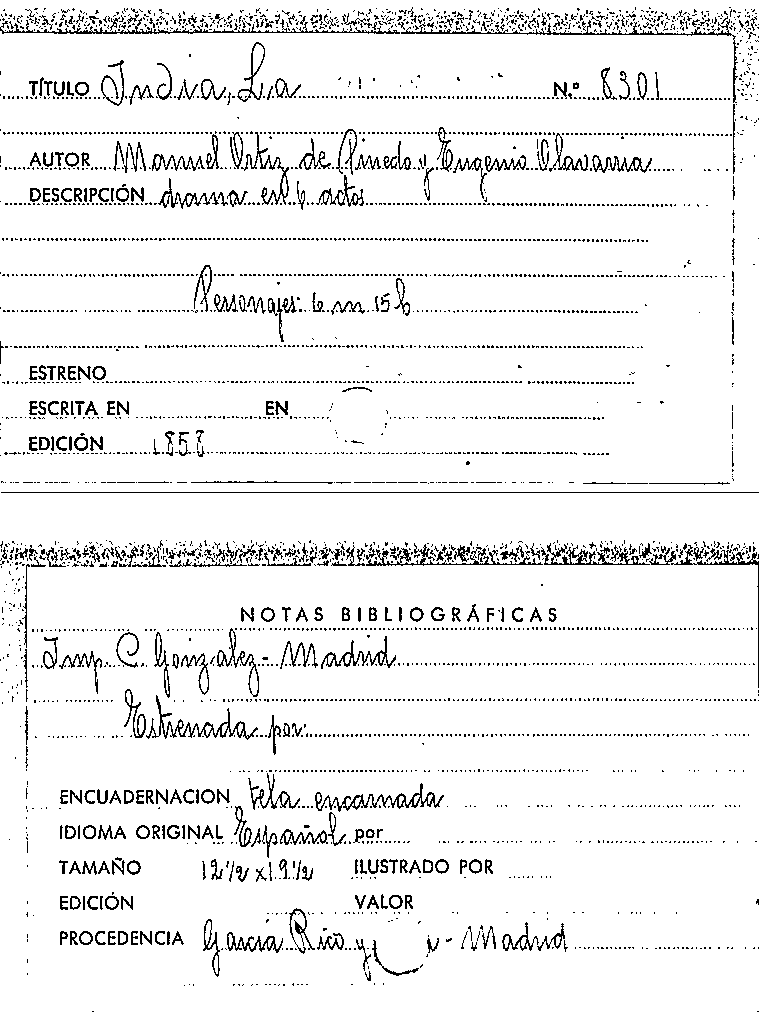 TÍTULO India, La N.º 8301
AUTOR Manuel Ortiz de Pinedo y Eugenio Olavarria
DESCRIPCIÓN drama en 6 actos
Personajes: 6 m 15 h
ESTRENO
ESCRITA EN EN
EDICIÓN 1858
NOTAS BIBLIOGRÁFICAS
Imp. C. Gonzalez - Madrid
Estrenada por:
ENCUADERNACION tela encarnada
IDIOMA ORIGINAL Español por
TAMAÑO 12 1/2 x 19 1/2 ILUSTRADO POR
EDICIÓN VALOR
PROCEDENCIA García Rico y - Madrid